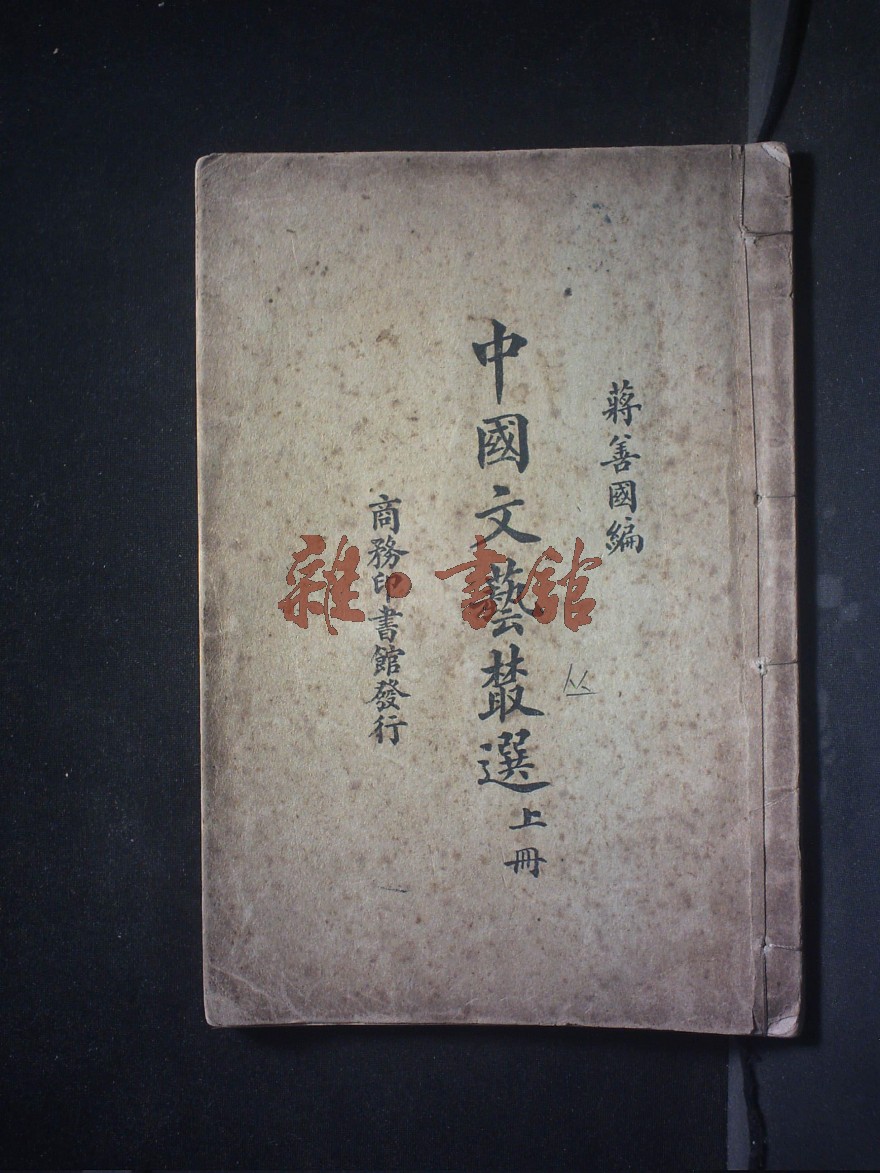 蔣善國編
中國文藝叢選上冊
丛
商務印書館發行
雜·書館